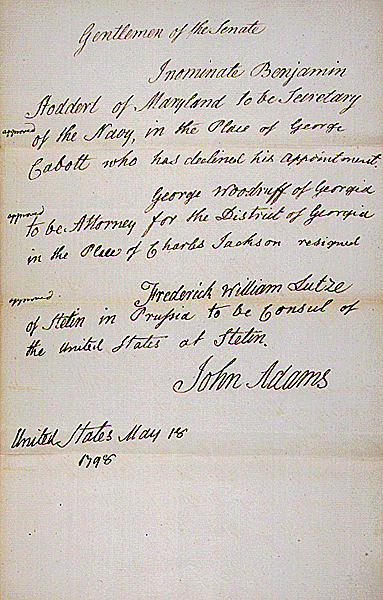 Gentlemen of the Senate
I nominate Benjamin
Stoddert of Maryland to be Secretary
approved
of the Navy, in the Place of George
Cabott who has declined his appointment.
George Woodruff of Georgia
approved
to be Attorney for the District of Georgia
in the Place of Charles Jackson resigned
approved.
Frederick William Lutze
of Stetin in Prussia to be Consul of
the United States at Stetin.
John Adams
United States May 18
1798